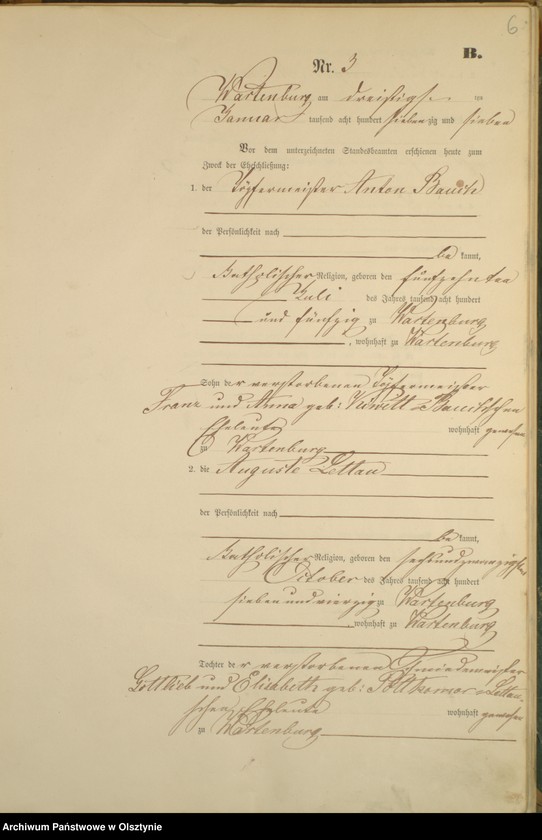 6
B.
Nr. 3
Wartenburg am dreißigsten
Januar tausend acht hundert siebenzig und sieben
Vor dem unterzeichneten Standesbeamten erschienen heute zum
Zweck der Eheschließung:
1. der Töpfermeister Anton
der Persönlichkeit nach
be kannt,
katholischer Religion, geboren den fünfzehnten
Juli des Jahres tausend acht hundert
und fünfzig zu Wartenburg
, wohnhaft zu Wartenburg
Sohn der verstorbenen Töpfermeister
Franz und Anna geb:
Eheleute wohnhaft gewesen
zu Wartenburg
2. die Auguste Lettau
der Persönlichkeit nach
be kannt,
katholischer Religion, geboren den sechsundzwanzigsten
October des Jahres tausend acht hundert
siebenundvierzig zu Wartenburg
, wohnhaft zu Wartenburg
Tochter der verstorbenen Schmiedemeister
Gottlieb und Elisabeth geb: Lettau-
schen Eheleute wohnhaft gewesen
zu Wartenburg
Archiwum Państwowe w Olsztynie